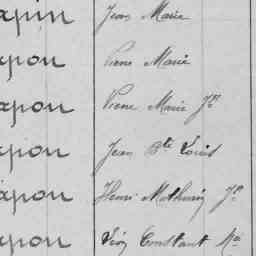 apin Jean Marie
apon Pierre Marie
apon Pierre Marie Jh
apon Jean Bte Louis
apon Henri Mathurin Jh
apon Léon Constant Mie